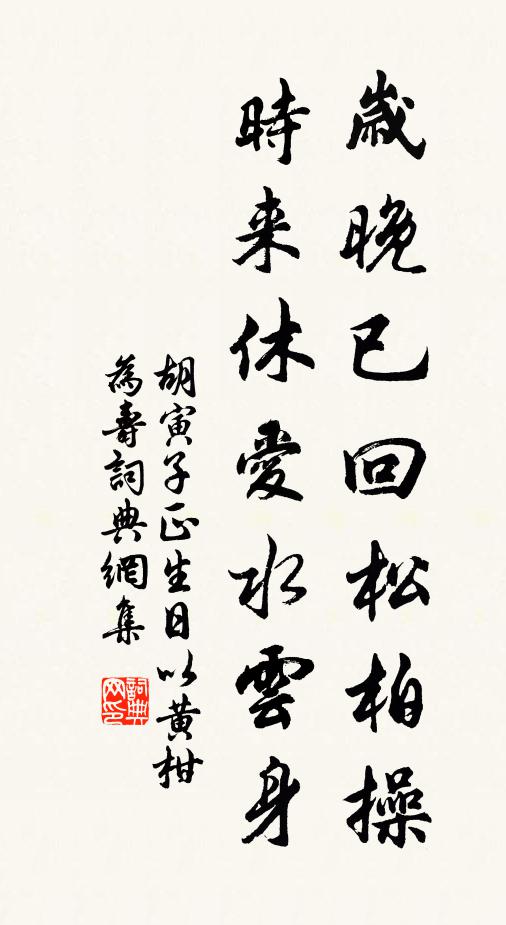 歲晚已回松柏操
時来休愛水雲身
胡寅子正生日以黄柑
為壽詞典網集
詞典网印